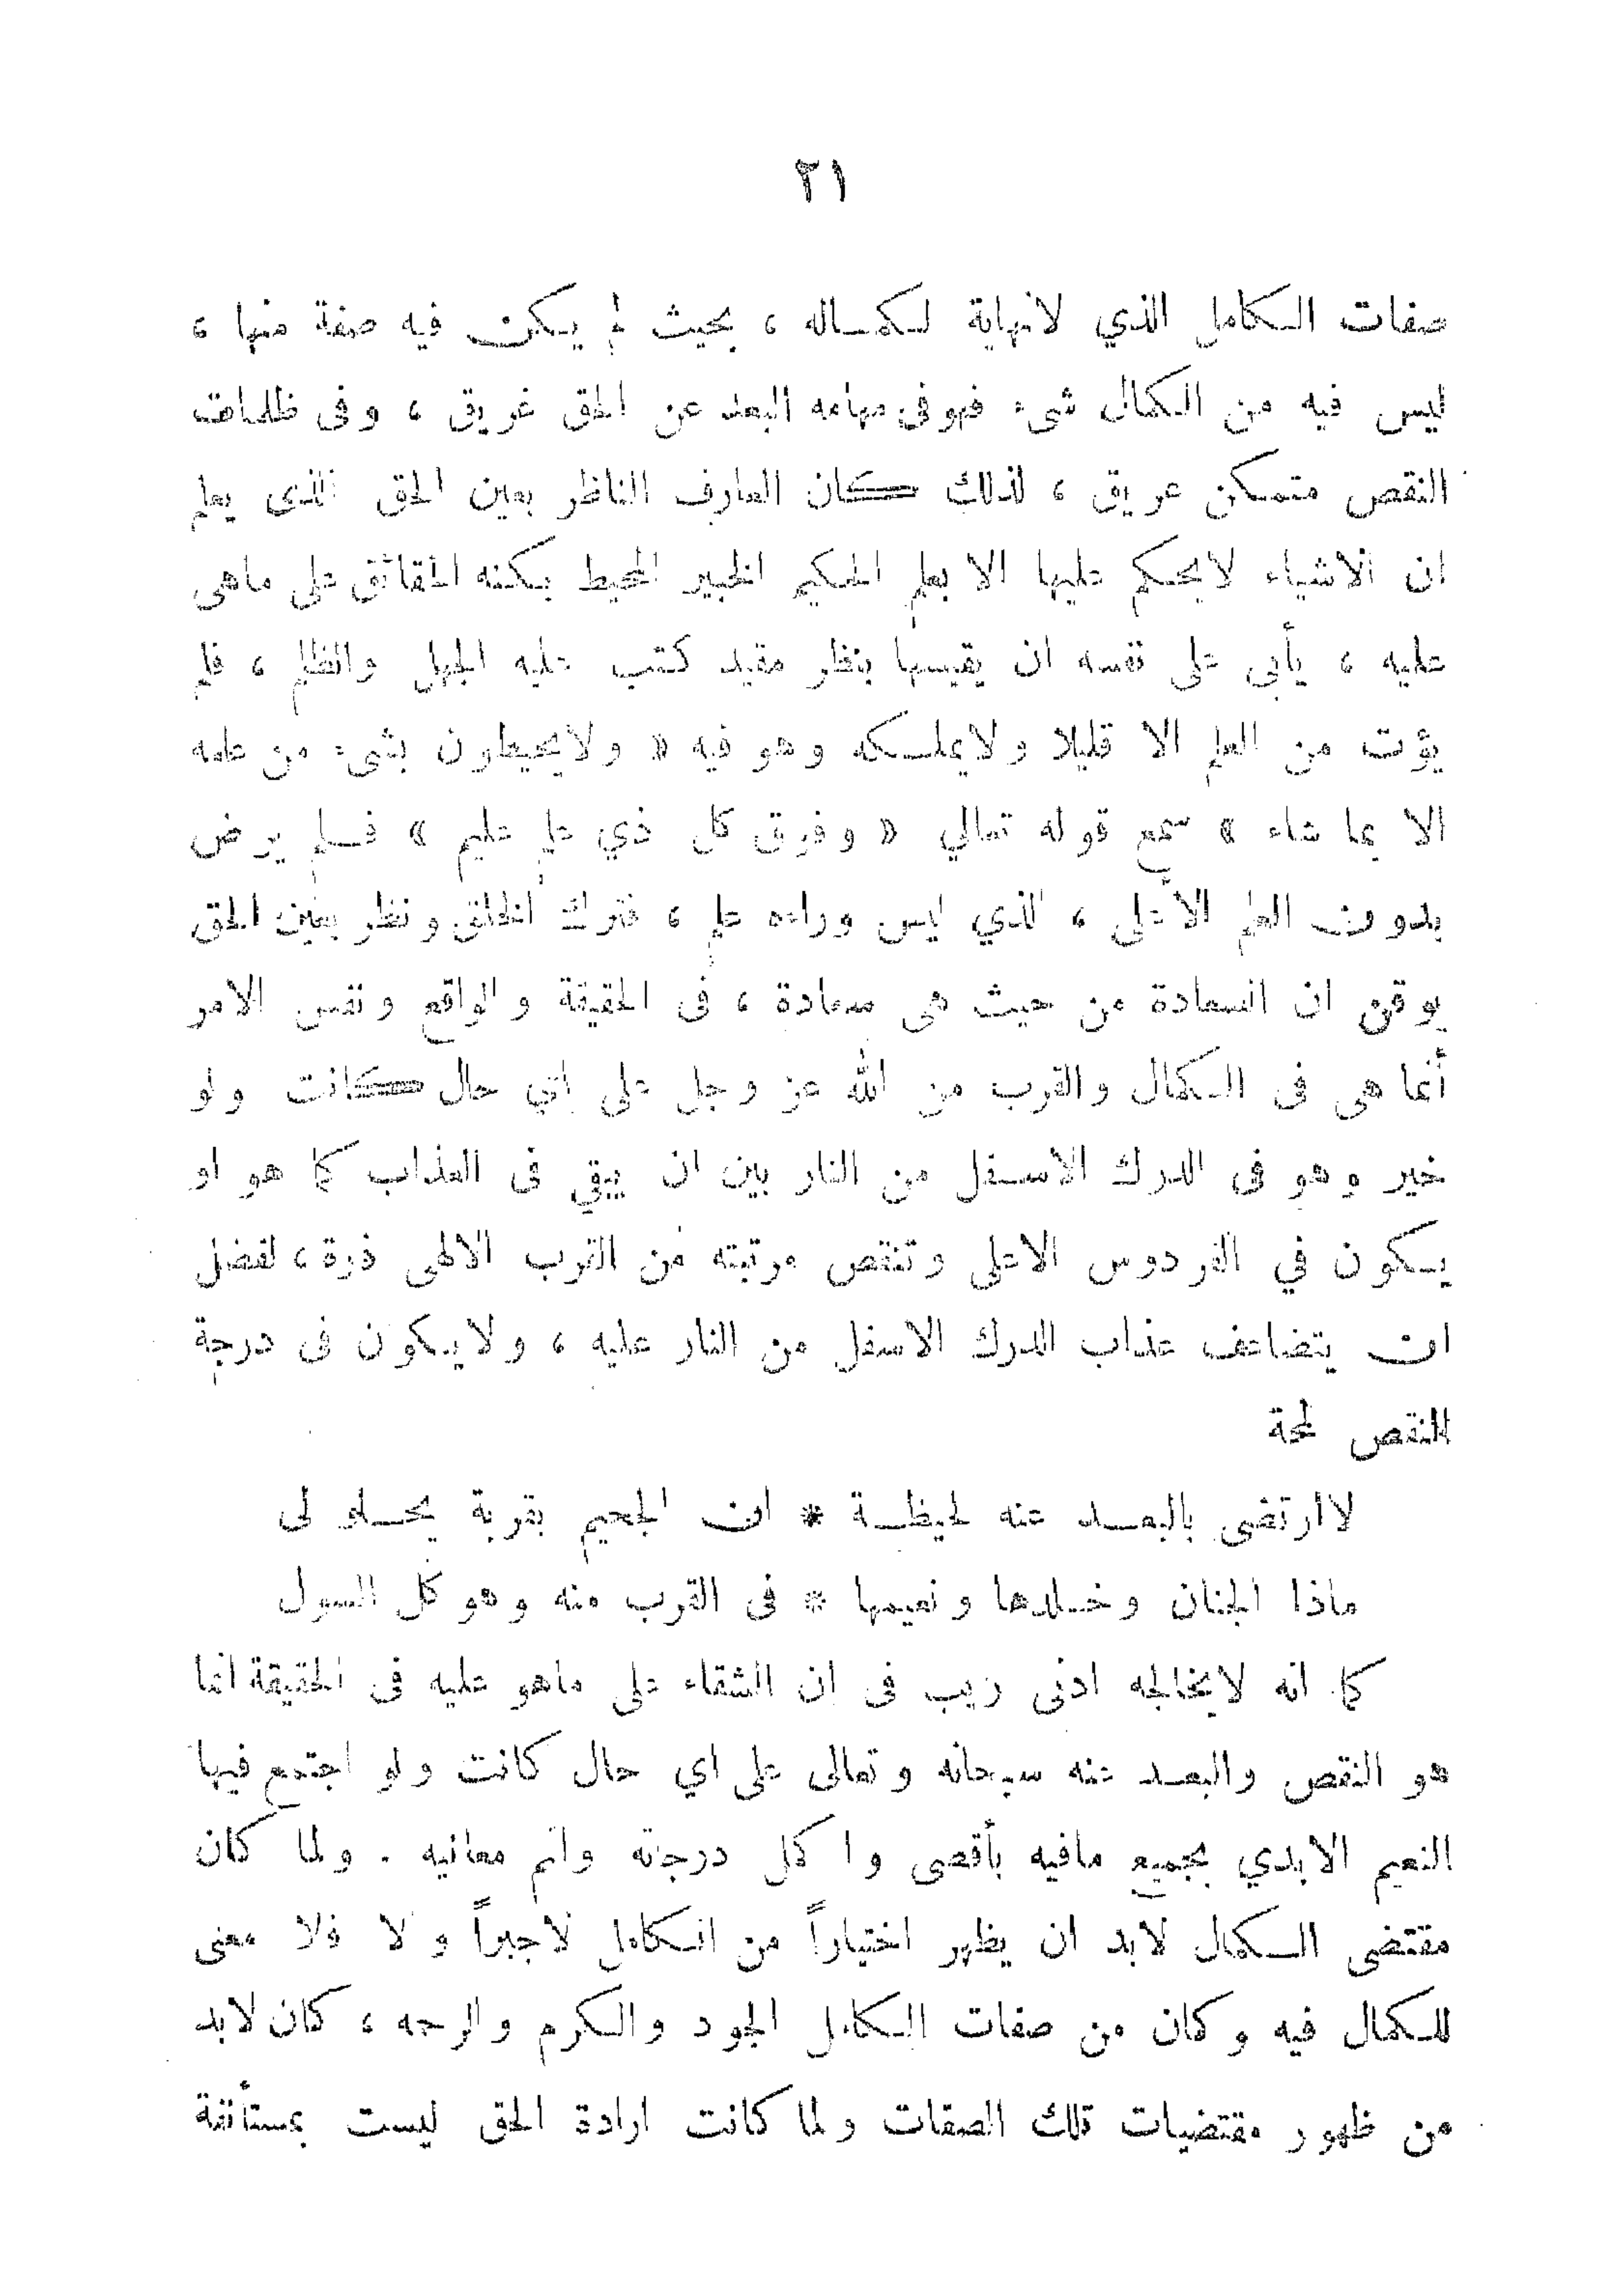 ٢١
صفات الكامل الذي لانهاية لكماله ، بحيث لم يكن فيه صفة منها ،
ليس فيه من الكمال شىء فهوفى مهامه البعد عن الحق غريق ، وفى ظلمات
النقص متمكن عريق ، لذلك كان العارف الناظر بعين الحق الذى يعلم
ان الاشياء لايحكم عليها الا بعلم الحكيم الخبير المحيط بكنه الحقائق على ماهى
عليه ، يأبى على نفسه ان يقيسها بنظر مقيد كتب عليه الجهل والظلم ، فلم
يؤت من العلم الا قليلا ولايملكه وهو فيه « ولايحيطون بشىء من علمه
الا بما شاء » سمع قوله تعالي « وفوق كل ذي علم عليم » فلم يرض
بدون العلم الأعلى ، الذي ليس وراءه علم ، فترك الخلق ونظر بعين الحق
يوقن ان السعادة من حيث هى سعادة ، فى الحقيقة والواقع ونفس الامر
أنما هى فى الكمال والقرب من الله عز وجل على اي حال كانت ولو
خير وهو فى الدرك الاسفل من النار بين ان يبقي فى العذاب كما هو او
يكون في الفردوس الاعلى وتنقص مرتبته من القرب الالهى ذرة ، لفضل
ان يتضاعف عذاب الدرك الاسفل من النار عليه ، ولايكون فى درجة
النقص لمحة
لاارتضى بالبعد عنه لحيظة * ان الجحيم بقربة يحلو لى
ماذا الجنان وخلدها ونعيمها * فى القرب منه وهو كل السول
كما انه لايخالجه ادنى ريب فى ان الشقاء على ماهو عليه فى الحقيقة انما
هو النقص والبعد عنه سبحانه وتعالى على اي حال كانت ولو اجتمع فيها
النعيم الابدي بجميع مافيه بأقصى واكمل درجاته واتم معانيه . ولما كان
مقتضى الكمال لابد ان يظهر اختياراً من الكامل لاجبراً ولا فلا معنى
للكمال فيه وكان من صفات الكامل الجود والكرم والرحمه ، كان لابد
من ظهور مقتضيات تلك الصفات ولما كانت ارادة الحق ليست بمستأنفة